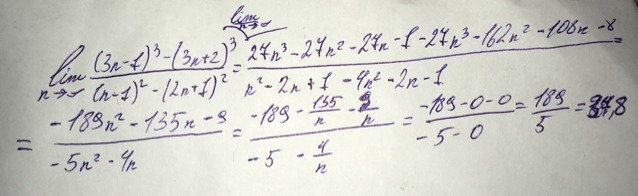 lim n→∞ (3n-1)³-(3n+2)³ / (n-1)²-(2n+1)² = lim n→∞ 27n³-27n²-27n-1-27n³-162n²-108n-8 / n²-2n+1-4n²-2n-1 =
= -189n²-135n-9 / -5n²-4n = -189 - 135/n - 9/n / -5 - 4/n = -189-0-0 / -5-0 = 189/5 = 37,8